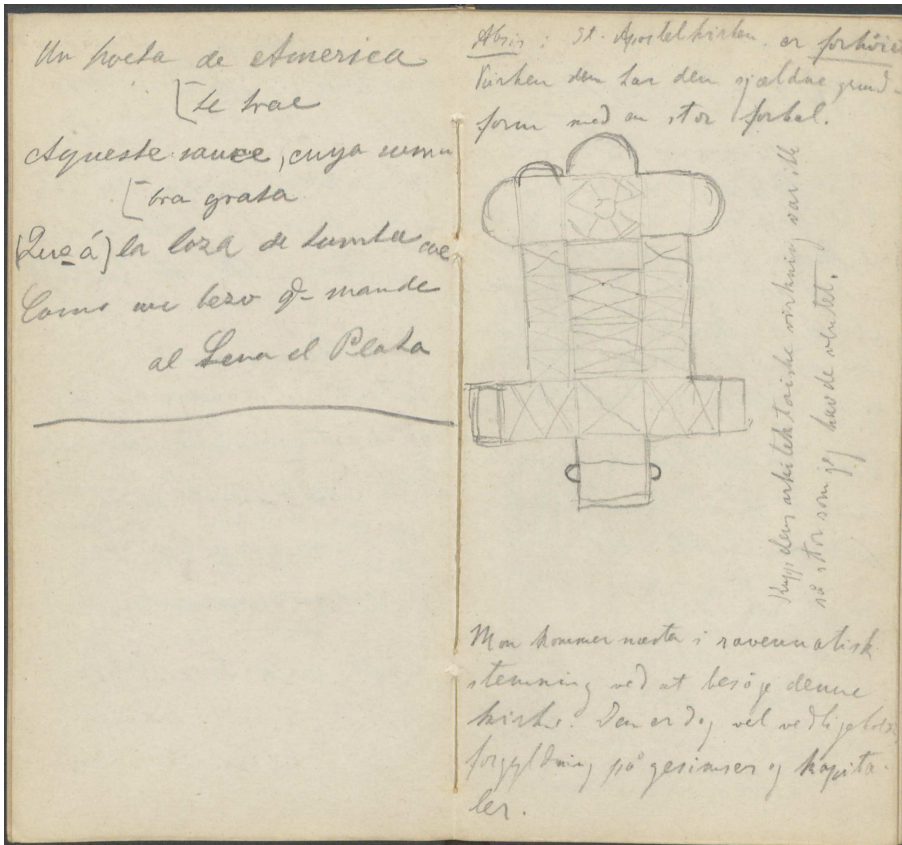 Un poeta de America
[te trae
Aqueste sauce, cuya som
bra grata
(Que á) la loza de tumba cae
Como un bezo q- mande
al Sena el Plata
Absis: St. Apostelkirken er forhöiet
Kirken den har den sjældne grund-
form med en stor forhal.
Kuppelens arkitektoniske virkning var ikk
så stor som jeg havde ventet.
Man kommer næsten i ravennatisk
stemning ved at besöge denne
kirke. Den er dog vel vedligeholdt
forgyldning på gesimser og kapitæ-
ler.